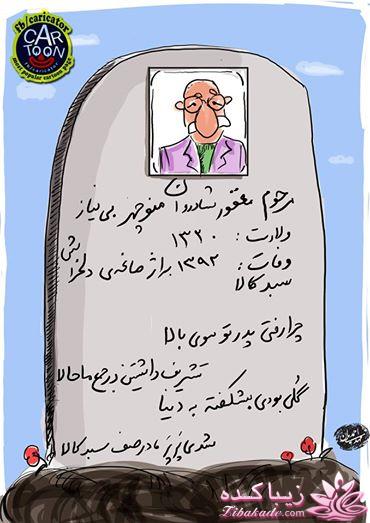 fb/caricator
CAR
TOON
most popular cartoon page
مرحوم مغفور شادروان منوچهر بی نیاز
ولادت: ۱۳۲۰
وفات: ۱۳۹۲ بر اثر ضایعه‌ی دلخراش
سبد کالا
چرا رفتی پدر تو سوی بالا
تشریف داشتین در جمع ما حالا
گلی بودی بشکفته به دنیا
شدی پرپر مادر صف سبد کالا
زیباکده
Zibakade.com